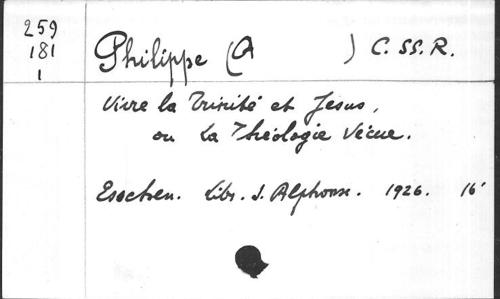 259
181
1
Philippe (A ) C. SS. R.
Vivre la Trinité et Jesus,
ou la Théologie Vécue.
Esschen. Libr. S. Alphonse. 1926. 16°